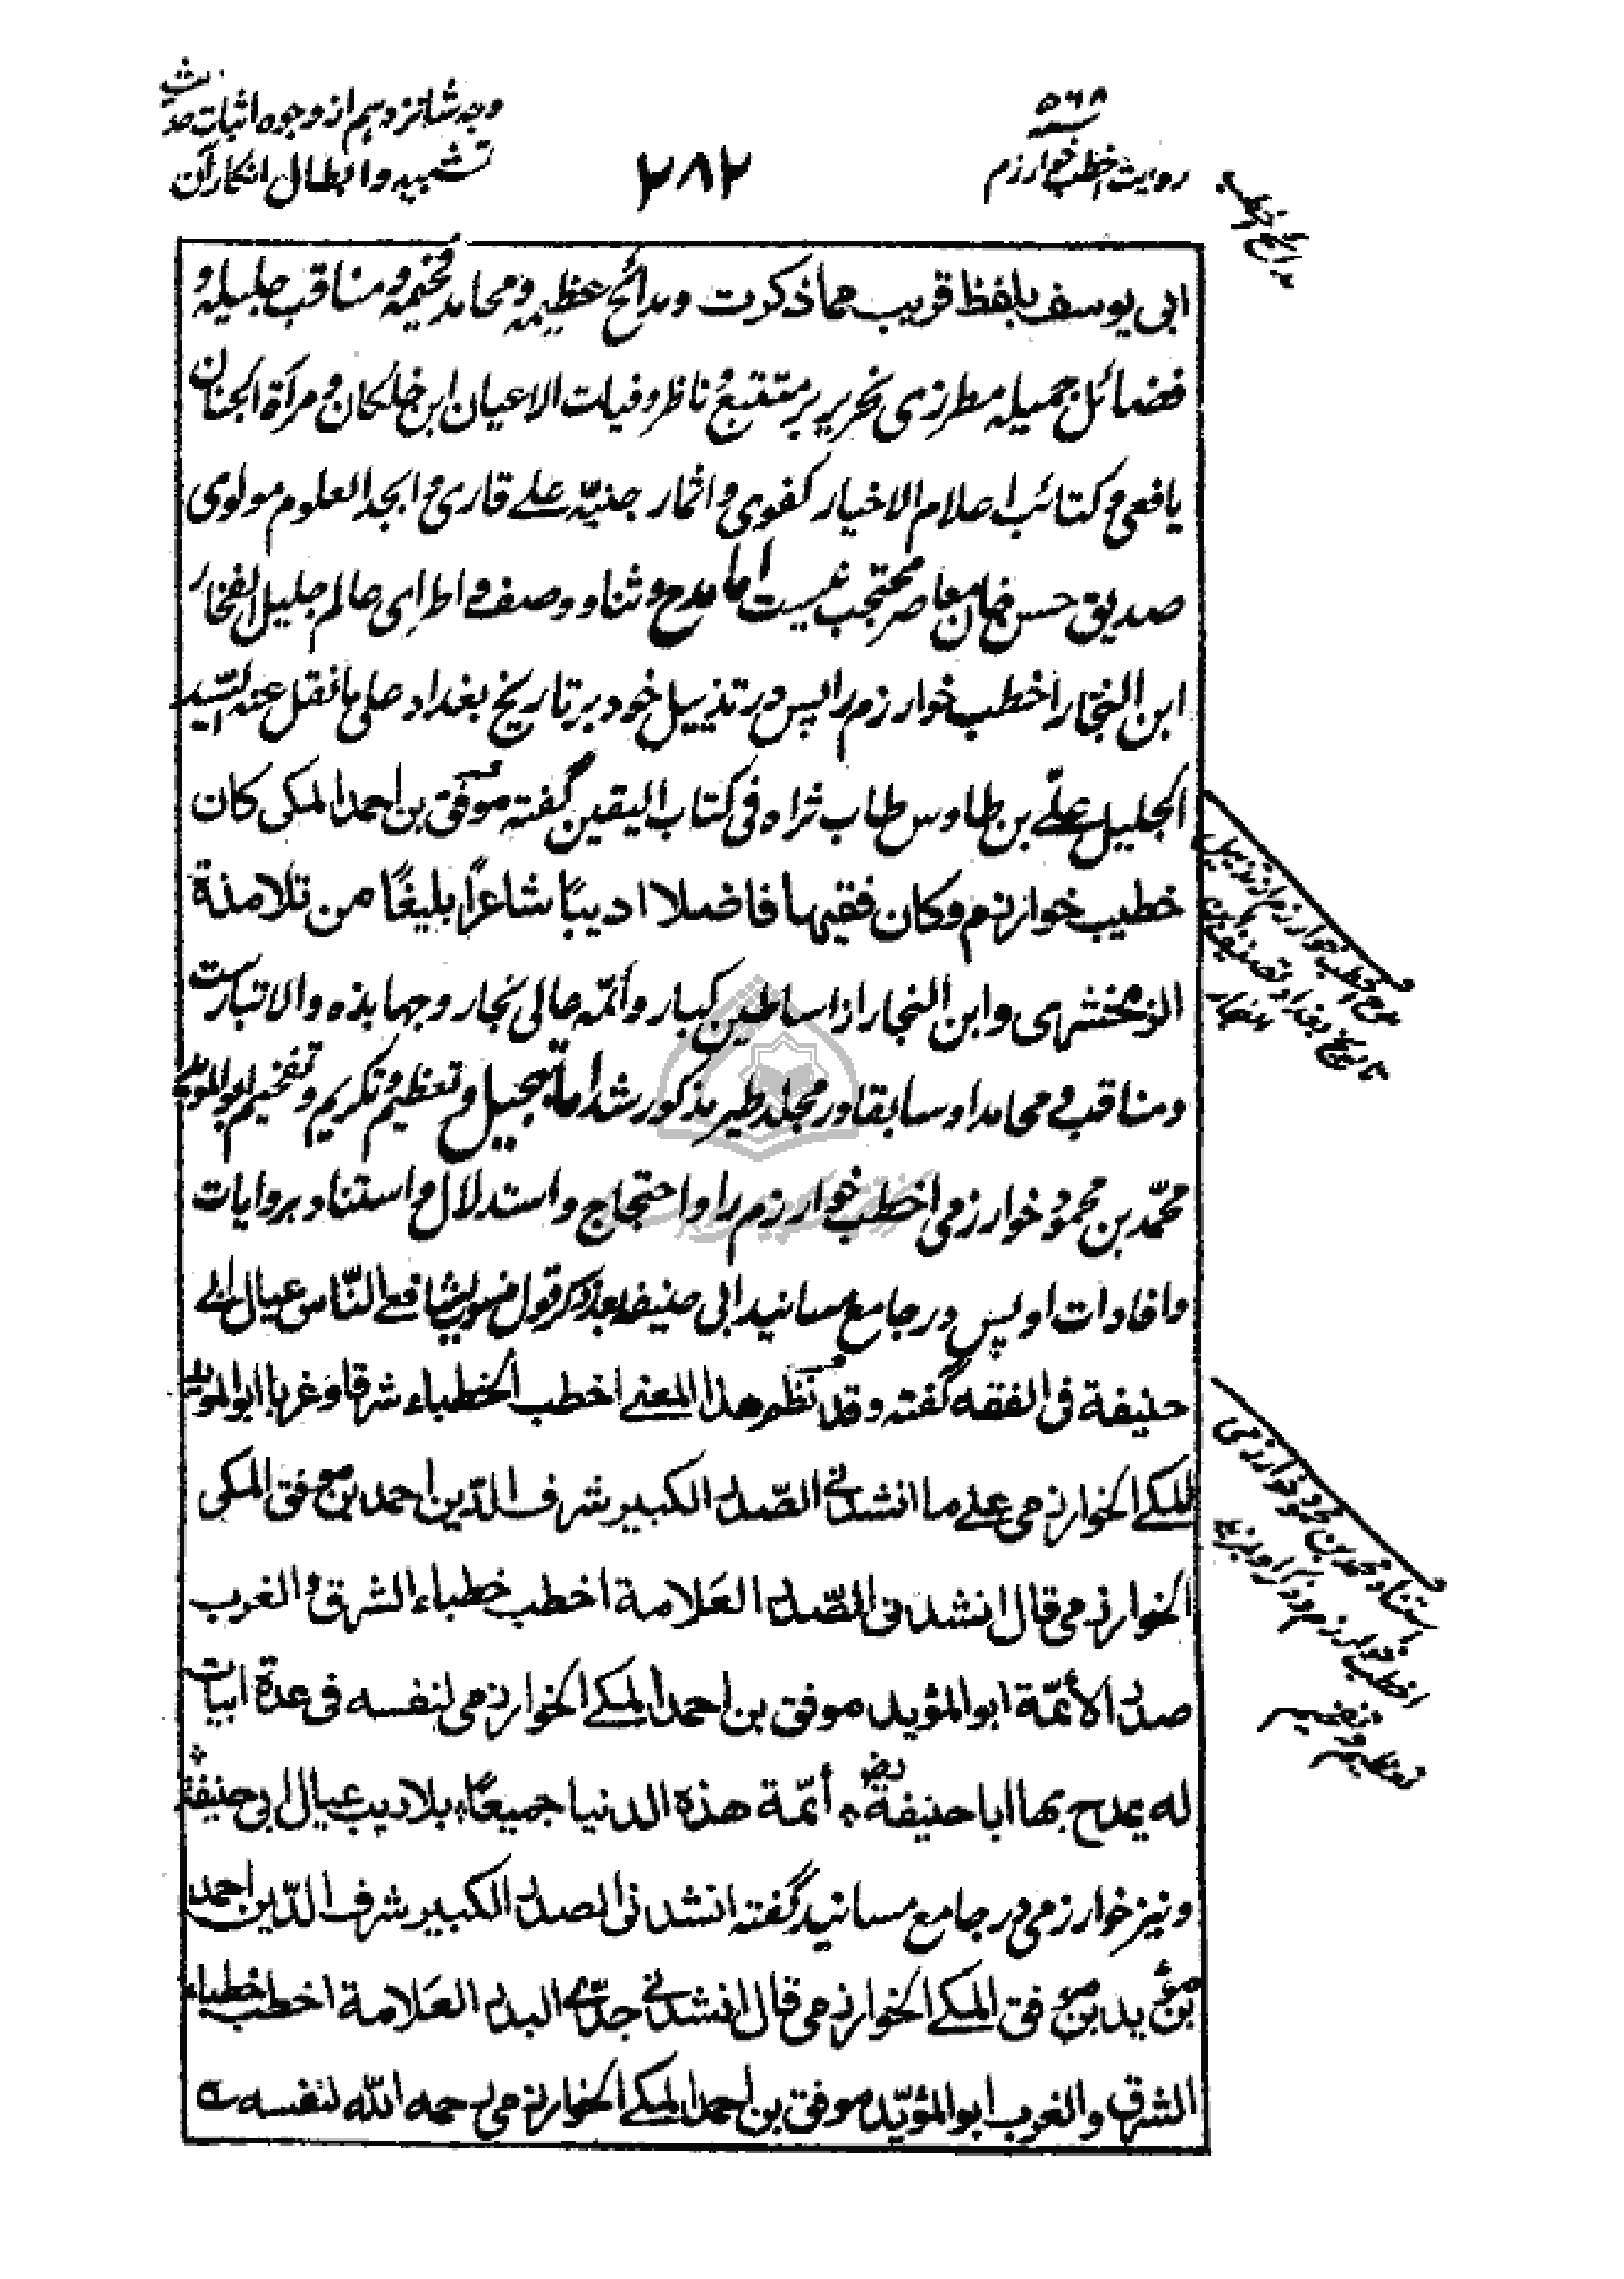 ۵۶۸
روایت اخطب خوارزم
۲۸۲
وجه شانزدهم از وجوه اثبات حدیث
تشبیه و ابطال انکار آن
مدائح اخطب
ابی یوسف بلفظ قریب مما ذکرت و مدائح عظیمه و محامد فخیمه و مناقب جلیله و
فضائل جمیله مطرزی نحریر بر متتبع و ناظر وفیات الاعیان ابن خلکان و مرآة الجنان
یافعی و کتائب اعلام الاخیار کفوی و اثمار جنیّه علے قاری و ابجد العلوم مولوی
صدیق حسن خان معاصر محتجب نیست اما مدح و ثنا و وصف و اطرای عالم جلیل الفخار
ابن النجار اخطب خوارزم را پس در تذییل خود بر تاریخ بغداد علی ما نقل عنه السّید
الجلیل علّے بن طاوس طاب ثراه فی کتاب الیقین گفته موفق بن احمد المکی کان
خطیب خوارزم و کان فقیها فاضلا ادیبًا شاعرًا بلیغًا من تلامذة
الزمخشری و ابن النجار از اساطین کبار و أئمّه عالی نجار و جهابذه والاتبارست
و مناقب و محامد او سابقا در مجلد طیر مذکور شد اما تبجیل و تعظیم و تکریم و تفخیم ابو المؤید
محمّد بن محمود خوارزمی اخطب خوارزم را و احتجاج و استدلال و استناد بروایات
و افادات او پس در جامع مسانید ابی حنیفه بعد ذکر قول منسوب بشافعے النّاس عیال ابے
حنیفة فی الفقه گفته و قد نظم هذا المعنے اخطب الخطباء شرقا و غربا ابو المؤید
المکے الخوارزمی علے ما انشدنی الصّدر الکبیر شرف الدّین احمد بن موفق المکی
الخوارزمی قال انشدنی الصّدر العَلامة اخطب خطباء الشرق و الغرب
صدر الأئمّة ابو المؤید موفق بن احمد المکے الخوارزمی لنفسه فی عدة ابیات
له یمدح بها ابا حنیفة رض أئمّة هذه الدنیا جمیعًا بلا ریب عیال ابی حنیفة
و نیز خوارزمی در جامع مسانید گفته انشدنی الصدر الکبیر شرف الدّین احمد
بن مؤید بن موفق المکے الخوارزمی قال انشدنی جدّی البدر العَلامة اخطب خطباء
الشرق و الغرب ابو المؤیّد موفق بن احمد المکے الخوارزمی رحمه الله لنفسه
مدح اخطب خوارزم از تذییل
تاریخ بغداد تصنیف ابن
النجار
استناد محمد بن محمود خوارزمی
اخطب خوارزم و ذکر او بمزید
تعظیم و تفخیم